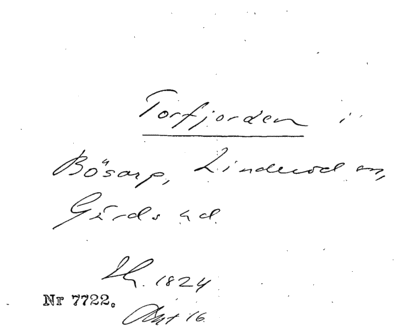 Torfjorden i
Bösarp, Linderöd sn,
Gärds hd.
1824
Nr 7722.
Akt 16.